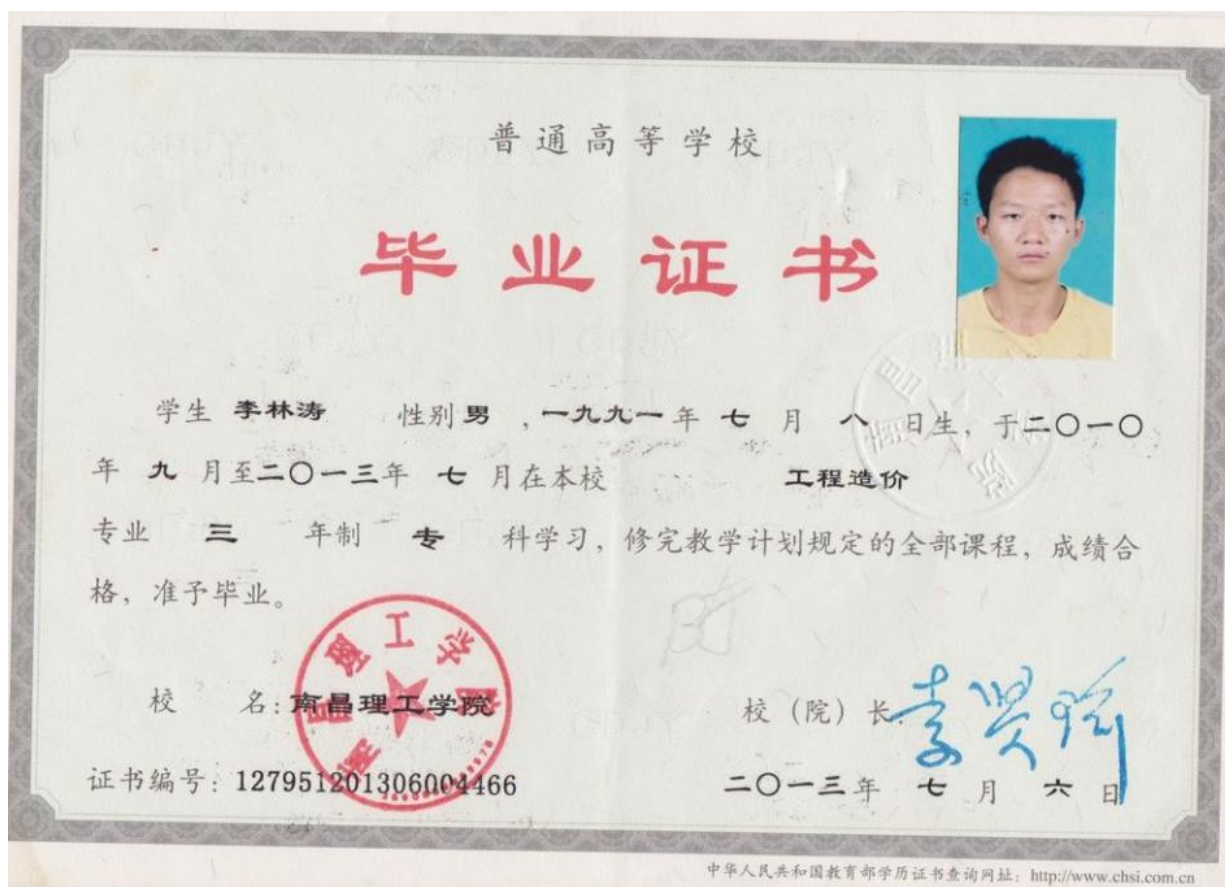 普通高等学校
毕业证书
学生 李林涛 性别 男 ，一九九一 年 七 月 八 日生，于二〇一〇
年 九 月至二〇一三年 七 月在本校 工程造价
专业 三 年制 专 科学习，修完教学计划规定的全部课程，成绩合
格，准予毕业。
校 名：南昌理工学院
校（院）长：
证书编号：127951201306004466
二〇一三年 七 月 六 日
南昌理工学院
中华人民共和国教育部学历证书查询网址：http://www.chsi.com.cn